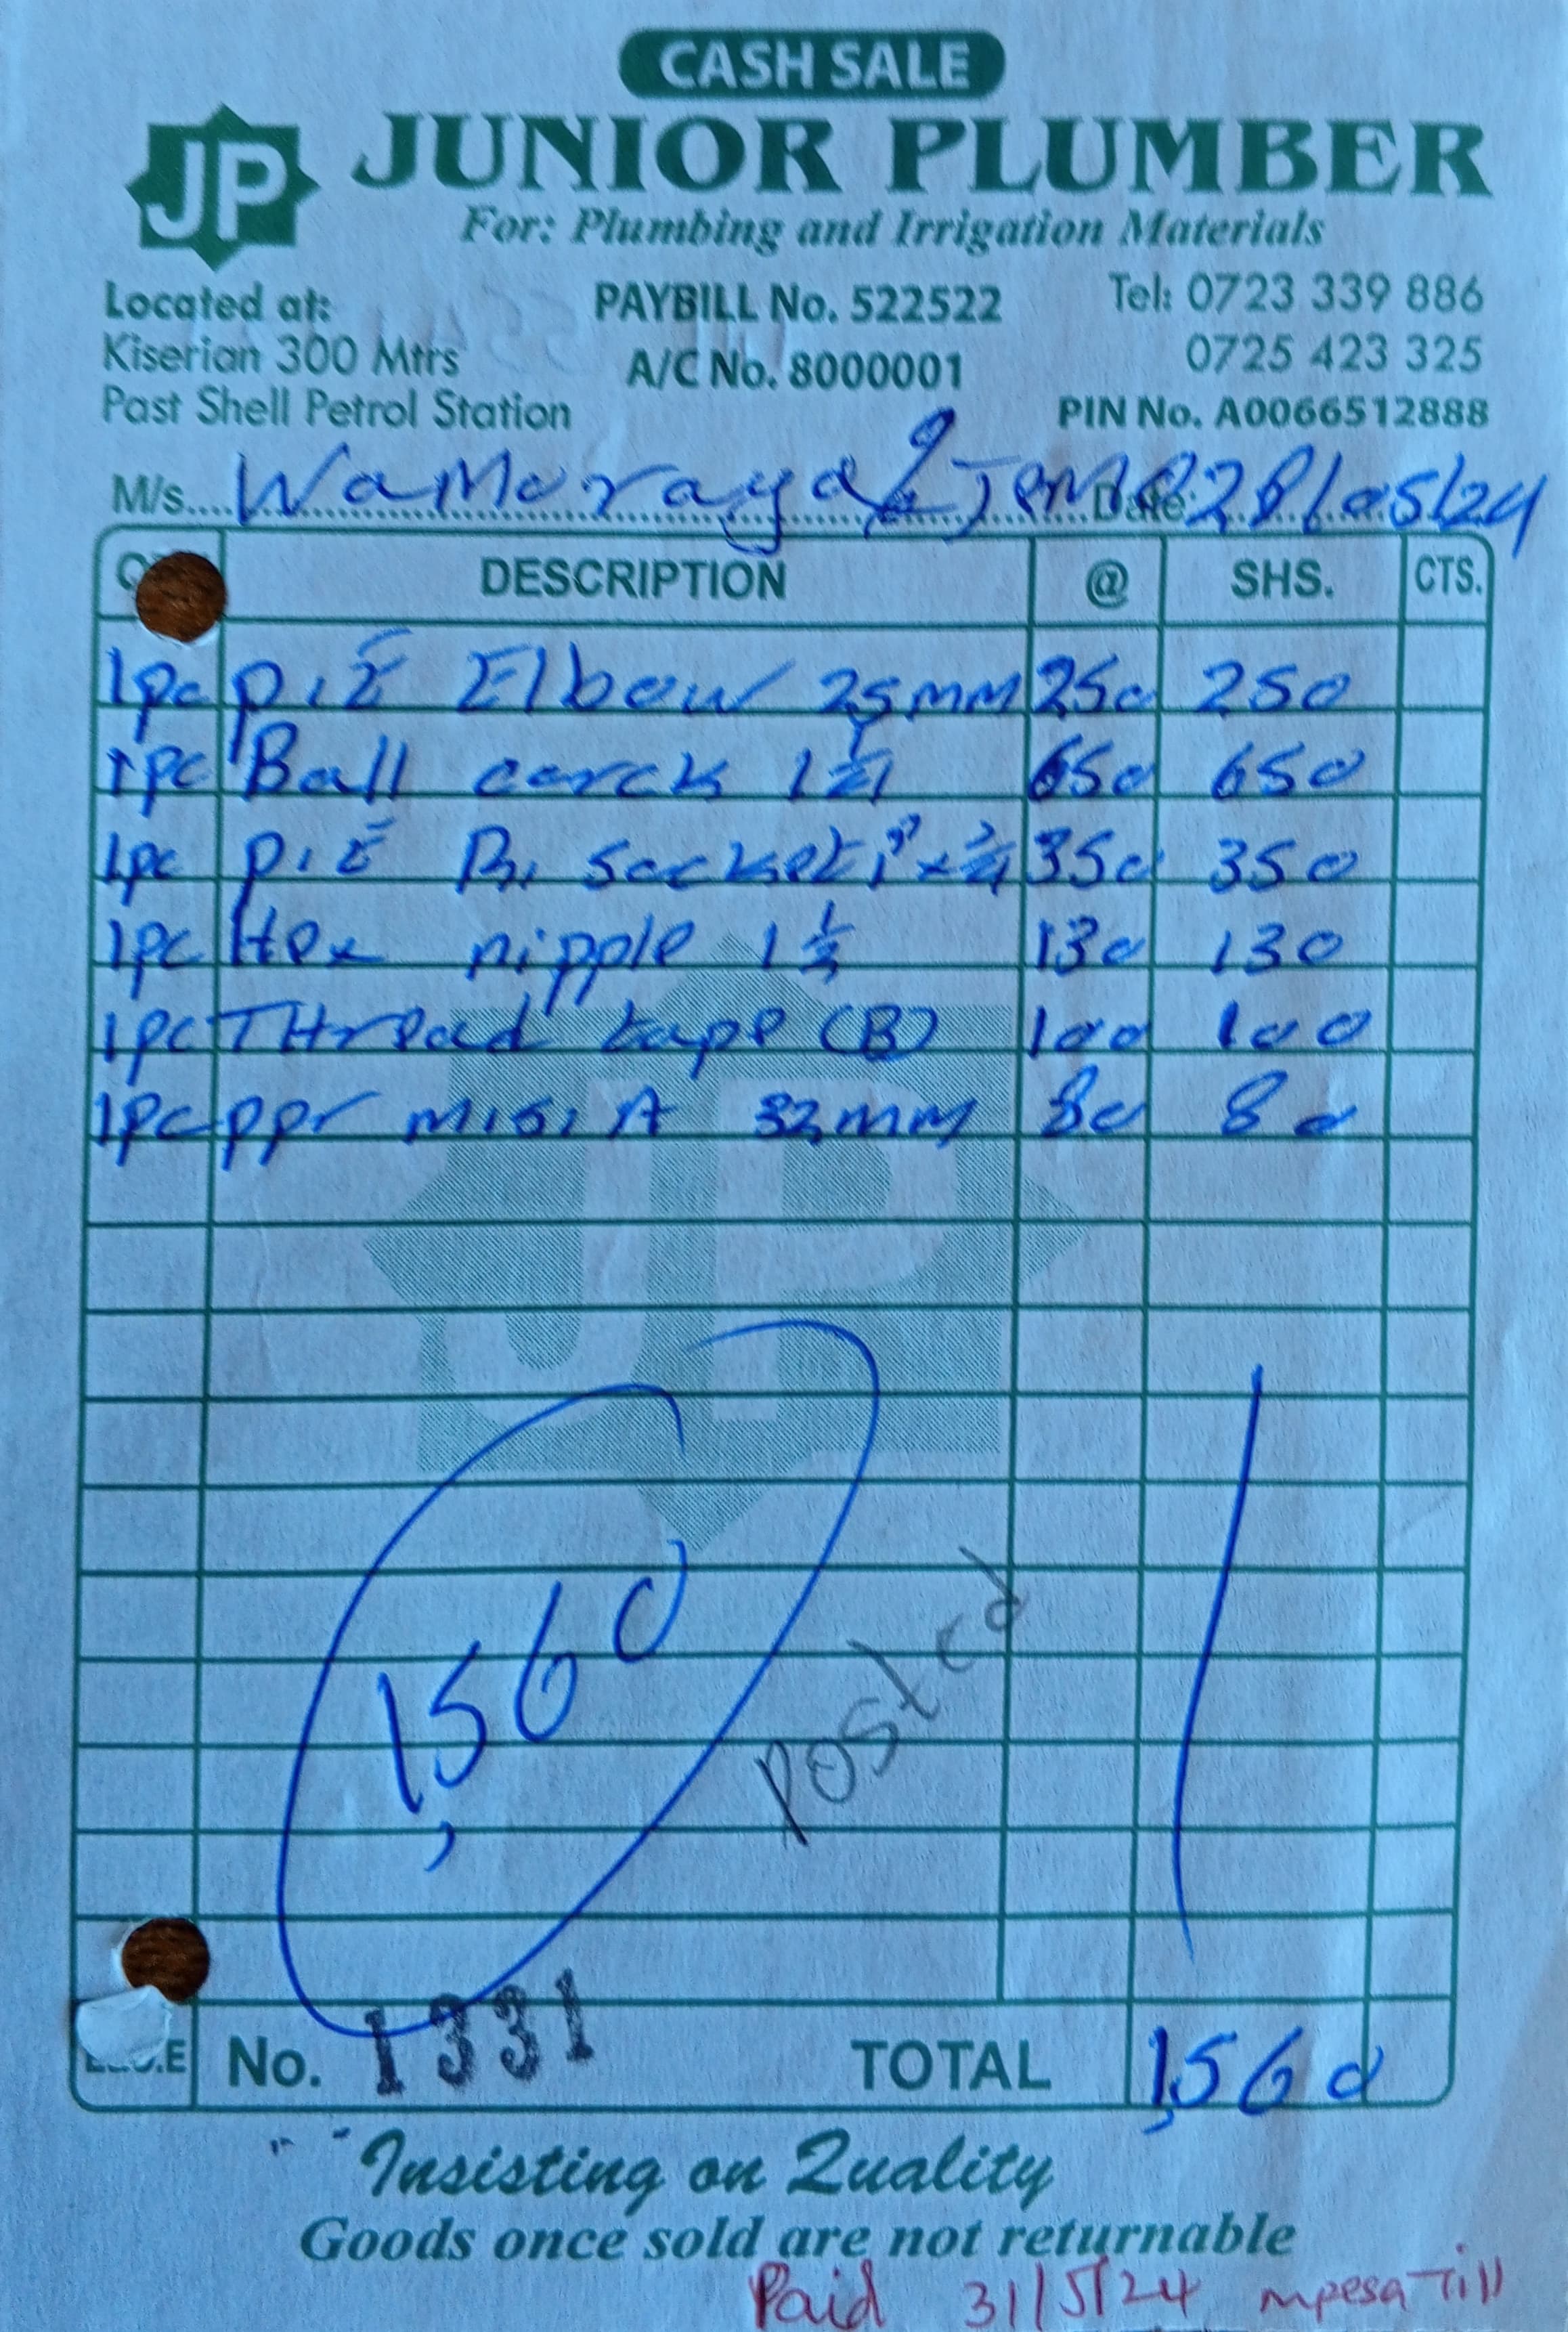 CASH SALE
JP JUNIOR PLUMBER
For: Plumbing and Irrigation Materials
Located at: PAYBILL No. 522522 Tel: 0723 339 886
Kiserian 300 Mtrs A/C No. 8000001 0725 423 325
Past Shell Petrol Station PIN No. A0066512888
M/s.... Date: 28/05/24
DESCRIPTION @ SHS. CTS.
1pc P.E Elbow 25mm 250 250
1pc Ball corck 650 650
1pc P.E socket 1" x 3/4 350 350
1pc Hex nipple 130 130
1pc THread tape (B) 100 100
1pc ppr 32mm 80 80
1,560
Posted
No. 1331 TOTAL 1,560
Insisting on Quality
Goods once sold are not returnable
Paid 31/5/24 mpesa Till